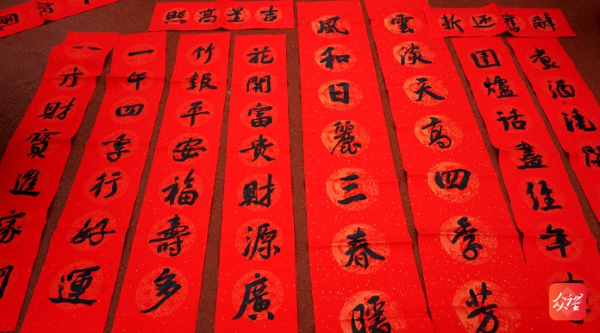 辭舊迎新
吉星高照
煮酒澆
圍爐話盡經年
雲淡天高四季芳
風和日麗三春暖
花開富貴財源廣
竹報平安福壽多
一年四季行好運
八方財寶進家門
众望